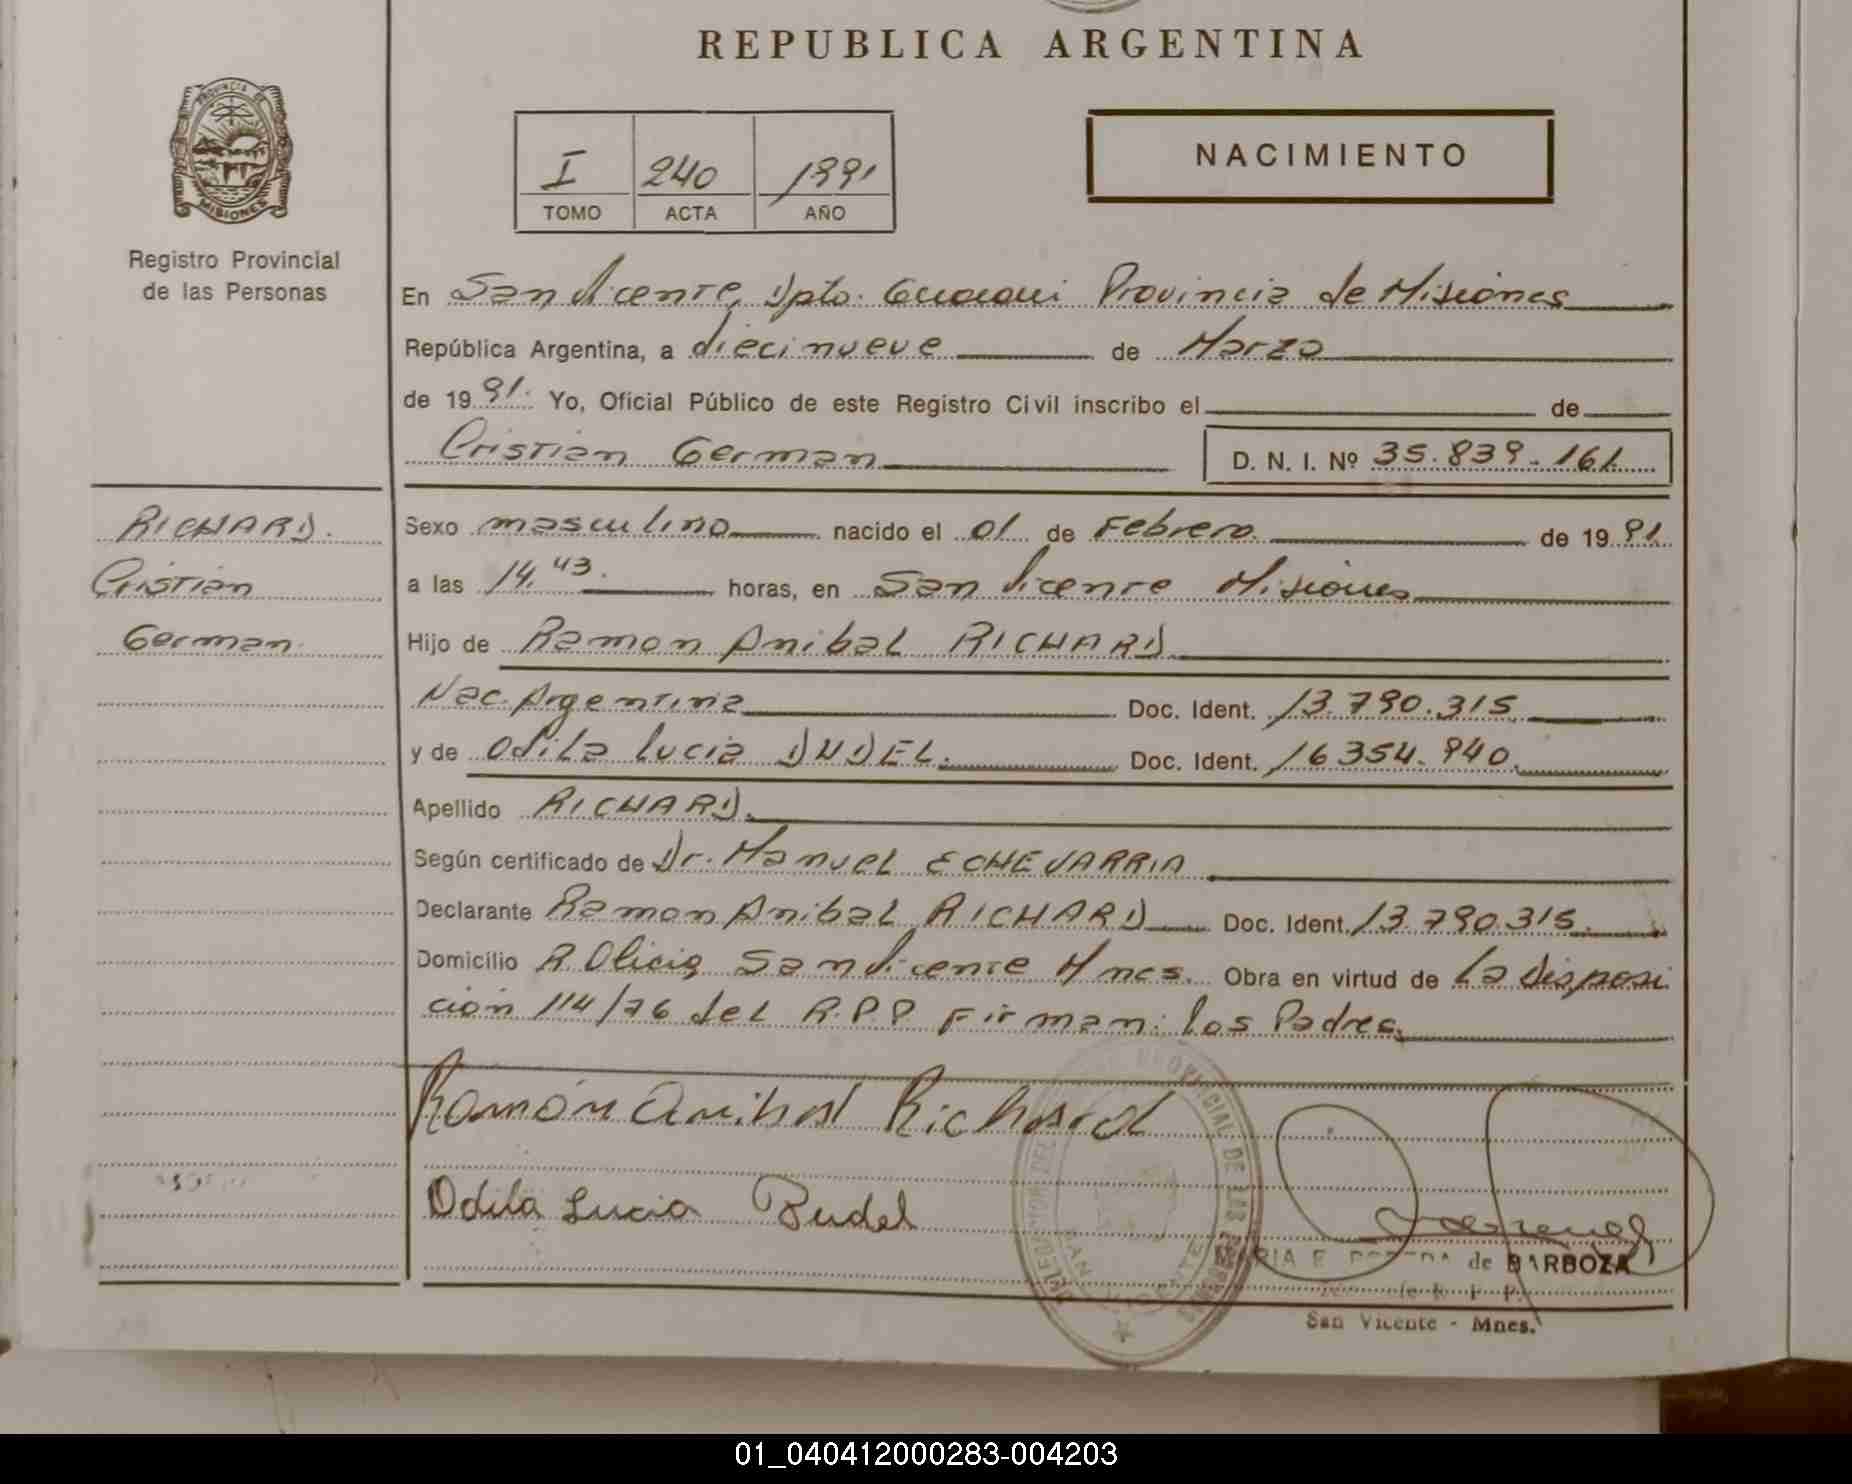 REPUBLICA ARGENTINA
PROVINCIA DE
MISIONES
Registro Provincial
de las Personas
I 240 1991
TOMO ACTA AÑO
NACIMIENTO
En San Vicente, Dpto. Guarani Provincia de Misiones
República Argentina, a diecinueve de Marzo
de 1991. Yo, Oficial Público de este Registro Civil inscribo el de
Cristian German D. N. I. Nº 35.839.161
RICHARD.
Cristian
German.
Sexo masculino nacido el 01 de Febrero de 1991.
a las 14.43. horas, en San Vicente Misiones
Hijo de Ramon Anibal RICHARD
Nac. Argentina Doc. Ident. 13.790.315
y de Odila Lucia Doc. Ident. 16354.940.
Apellido RICHARD.
Según certificado de Dr. Manuel ECHEVARRIA
Declarante Ramon Anibal RICHARD Doc. Ident. 13.790.315.
Domicilio R. Olicia San Vicente Mnes. Obra en virtud de La Disposi
cion 114/76 del R.P.P Firman: los Padres.
Ramón Anibal Richard
Odila Lucia
DELEGACION DEL PROVINCIAL DE LAS PERSONAS
SAN VICENTE
MARIA E. de BARBOZA
San Vicente - Mnes.
01_040412000283-004203